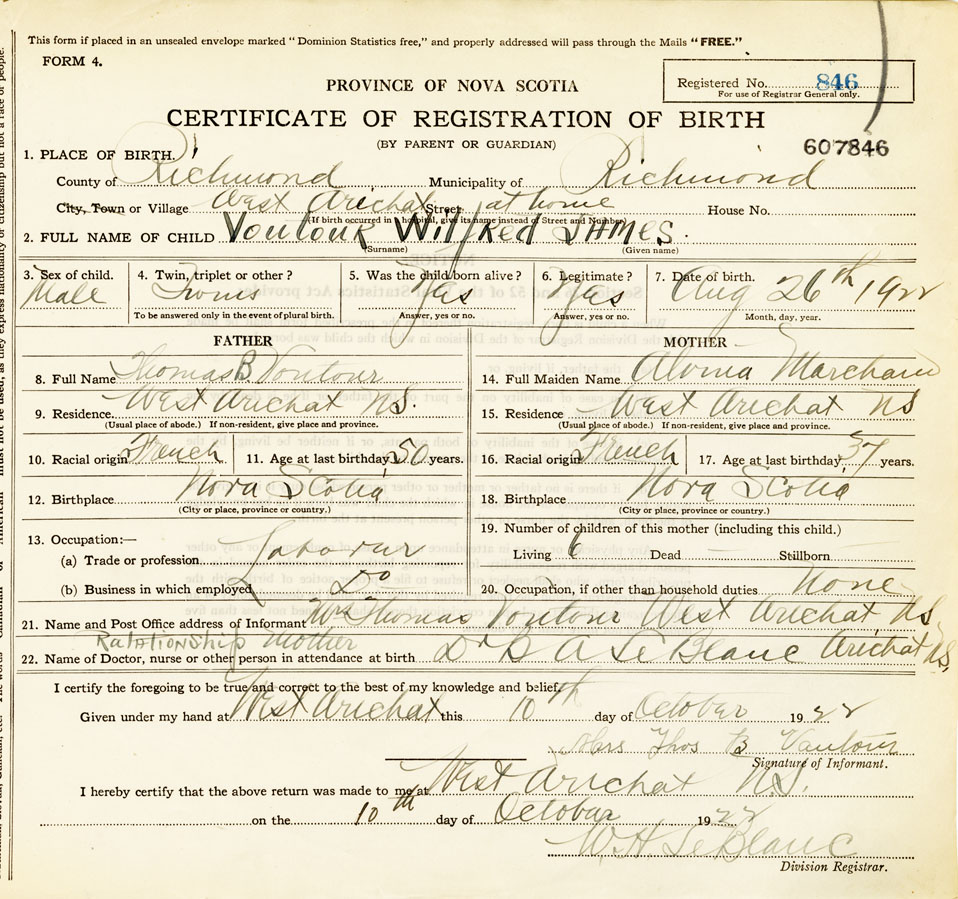 This form if placed in an unsealed envelope marked "Dominion Statistics free," and properly addressed will pass through the Mails "FREE."
FORM 4.
PROVINCE OF NOVA SCOTIA
Registered No. 846
For use of Registrar General only.
CERTIFICATE OF REGISTRATION OF BIRTH
(BY PARENT OR GUARDIAN)
607846
1. PLACE OF BIRTH.
County of Richmond Municipality of Richmond
City, Town or Village West Arichat Street at home House No.
(If birth occurred in a hospital, give its name instead of Street and Number)
2. FULL NAME OF CHILD Voutour Wilfred JAMES.
(Surname) (Given name)
3. Sex of child. 4. Twin, triplet or other? 5. Was the child born alive? 6. Legitimate? 7. Date of birth.
Male Twins Yes Yes Aug 26th 1922
To be answered only in the event of plural birth. Answer, yes or no. Answer, yes or no. Month, day, year.
FATHER MOTHER
8. Full Name Thomas B Voutour 14. Full Maiden Name Marchand
9. Residence West Arichat NS. 15. Residence West Arichat NS
(Usual place of abode.) If non-resident, give place and province. (Usual place of abode.) If non-resident, give place and province.
10. Racial origin French 11. Age at last birthday 50 years. 16. Racial origin French 17. Age at last birthday 37 years.
12. Birthplace Nova Scotia 18. Birthplace Nova Scotia
(City or place, province or country.) (City or place, province or country.)
13. Occupation:— 19. Number of children of this mother (including this child.)
(a) Trade or profession Labourer Living 6 Dead — Stillborn —
(b) Business in which employed Do 20. Occupation, if other than household duties None
21. Name and Post Office address of Informant Mrs Thomas Voutour West Arichat NS
Relationship mother
22. Name of Doctor, nurse or other person in attendance at birth Dr B A Le Blanc Arichat NS,
I certify the foregoing to be true and correct to the best of my knowledge and belief.
Given under my hand at West Arichat this 10th day of October 1922
Mrs Thos B Voutour
Signature of Informant.
I hereby certify that the above return was made to me at West Arichat N.S.
on the 10th day of October 1922
W. H. Le Blanc
Division Registrar.